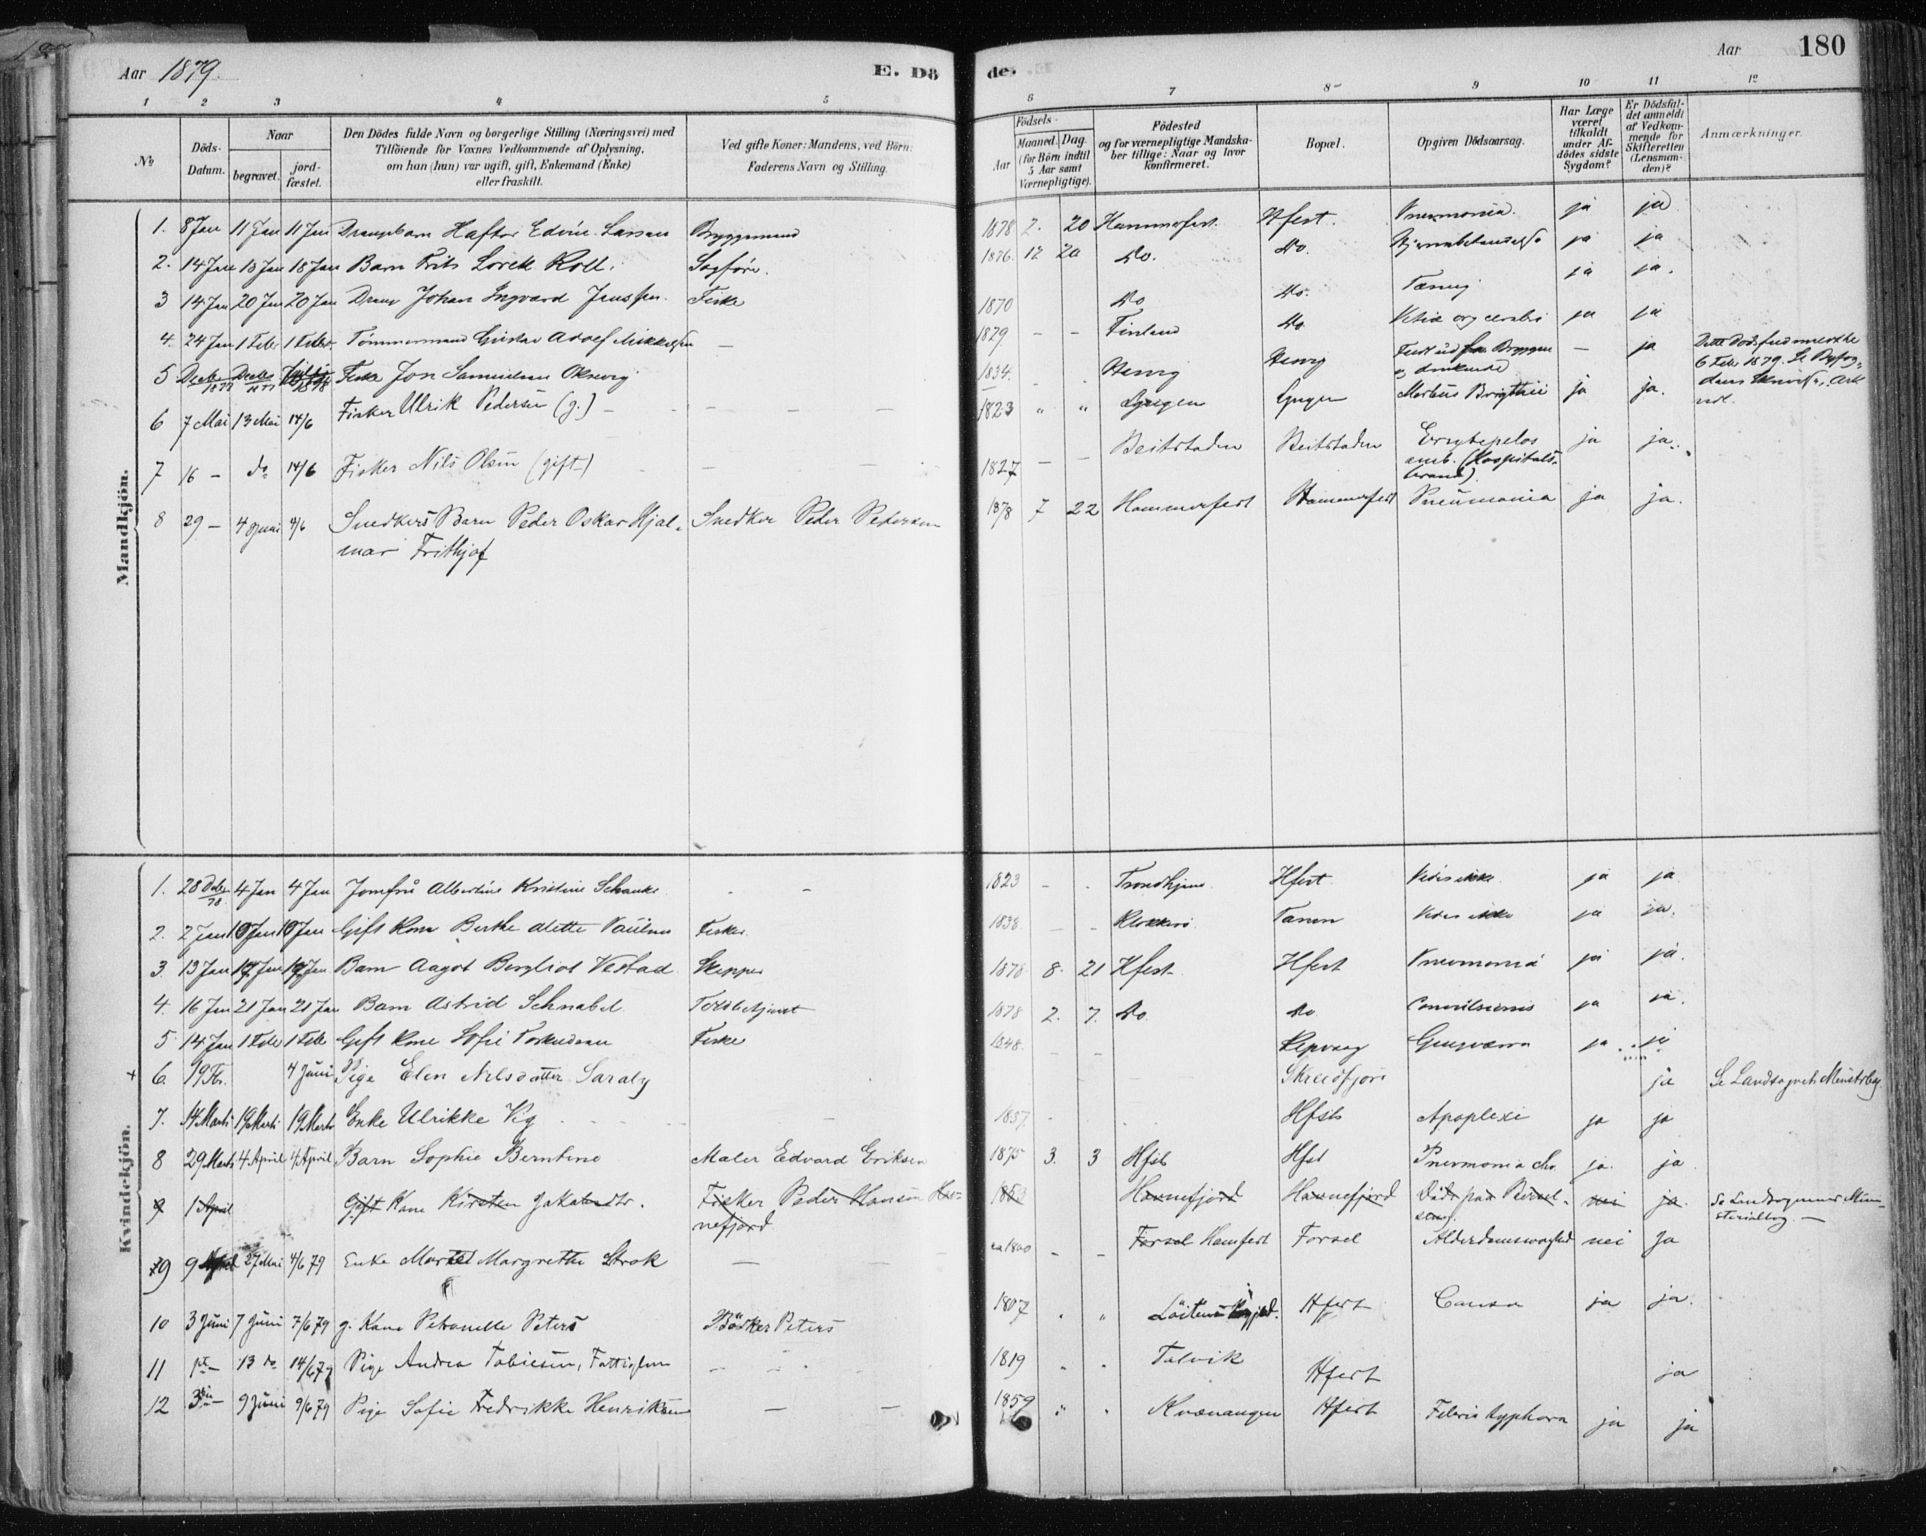 Aar 1879.
E. Dö
de.
Aar 180
1 2 3 4 5 6 7 8 9 10 11 12
№
Döds-Datum.
Naar
begravet.
jord-fæstet.
Den Dödes fulde Navn og borgerlige Stilling (Næringsvei) med
Tilföiende for Voxnes Vedkommende af Oplysning,
om han (hun) var ugift, gift, Enkemand (Enke)
eller fraskilt.
Ved gifte Koner: Mandens, ved Börn:
Faderens Navn og Stilling.
Födsels-
Aar
Maaned. Dag.
(for Börn indtil
5 Aar samt
Værnepligtige).
Födested
og for værnepligtige Mandska-
ber tillige: Naar og hvor
konfirmeret.
Bopæl.
Opgiven Dödsaarsag.
Har Læge
været
tilkaldt
under Af-
dödes sidste
Sygdom?
Er Dödsfal-
det anmeldt
af Vedkom-
mende for
Skifteretten
(Lensman-
den)?
Anmærkninger.
Mandkjön.
1. 8 Jan 11 Jan 11 Jan Drengebarn Haftor Edvin Larsen Bryggemand 1878 2. 20 Hammerfest. Hfest. Pneumonia. ja ja
2. 14 Jan 18 Jan 18 Jan Barn Frits Lorck Roll. Sagförer. 1876. 12 20 Do. Do. ja ja
3 14 Jan 20 Jan 20 Jan Dreng Johan Ingvard Jenssen. Fisker 1870 Do Do. Tæring ja ja.
4. 24 Jan 1 Febr 1 Febr. Tömmermand Gustav Adolf Mikkelsen — 1829 - - Finland Do ja ja
5 Decbr 1877 Decbr 1877 Fisker Jon Samuelsen 1834. — ja
6 Febr 1879. Se
6 7 Mai 13 Mai 14/6 Fisker Ulrik Pedersen (g.) — — — 1823 " " Lyngen Lyngen Morbus Brigthii ja ja.
7 16 — do 14/6 Fisker Nils Olsen (gift) — — 1827 — — Beitstaden Beitstaden amb. (Hospitals-
brand). ja ja.
8 29 — 4 Juni 4/6 Snedkers Barn Peder Oskar Hjal- Snedker Peder Pedersen 1878 7 22 Hammerfest Hammerfest Pneumonia ja ja.
mar Frithjof
Kvindekjön.
1. 28 Decbr 78 4 Jan 4 Jan Jomfru Albertine Kristine Schanke - - 1823 - - Trondhjem Hfest. Vides ikke ja ja
2. 2 Jan 10 Jan 10 Jan Gift Kone Berthe Alette Paulsen Fisker. 1838. — — Vides ikke ja ja.
3. 13 Jan 17 Jan 17 Jan Barn Aagot Bergliot Vestad Skipper 1878 8. 21 Hfest. Hfest Pneumonia ja ja.
4. 16 Jan 21 Jan 21 Jan Barn Astrid Schnabel Toldbetjent 1878 2. 7. Do. Do. Convulsiones ja ja.
5 14 Jan 1 Febr 1 Febr Gift Kone Sofie Fisker 1848. - - Repvaag ja ja
+ 6. 19 Fbr. 4 Juni Pige Elen Nilsdatter Saraby ja Se Landsognets Ministbog
7. 14 Marts 19 Marts 19 Marts Enke Ulrikke Vig - 1837. - Hfst Apoplexi ja ja
8 29 Marts 4 April 4 April Barn Sophie Berntine Maler Edvard Eriksen 1875 3. 3 Hfst Hfst Pneumonia chr. ja. ja
9 1 April Gift Kone Kirsten Jakobsdtr. Fisker Peder Hansen Ha- Havnefjord Havnefjord Död paa Barsel- nei ja. Se Landsognenes Mini-
nefjord seng. sterialbog. —
9 9 April 27 Mai 4/6 79 Enke Margrethe Strok — — ca 1800 — — Forsøl Hamfest Forsøl nei Ja
10 3 Juni 7 Juni 7/6 79 g. Kone Petronelle Peters Bödker Peters 1807 " " Hfest ja ja.
11 13 do 14/6 79 Pige Andrea Tobiesen, Fattiglem — — 1819 " " Talvik Hfest ja
12 9 Juni 9/6 79 Pige Sofie Fredrikke Henriksen — — 1859 " " Kvænangen Hfest Febris typhosa ja ja